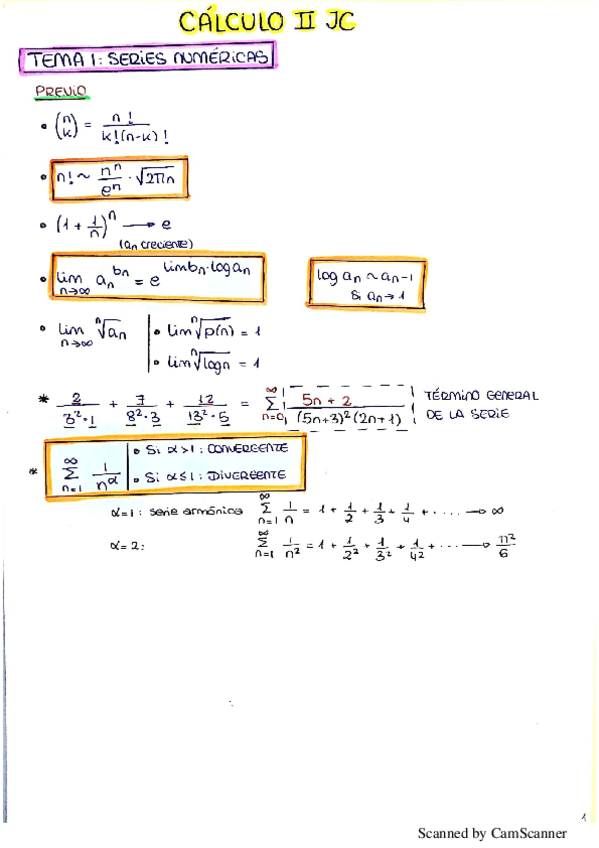 CÁLCULO II JC
TEMA 1: SERIES NUMÉRICAS
PREVIO
• (n k) = n! / k!(n-k)!
• n! ~ nⁿ/eⁿ · √2πn
• (1 + 1/n)ⁿ → e
(an creciente)
• lim n→∞ an^bn = e^lim bn·log an
log an ~ an-1
Si an → 1
• lim n→∞ ⁿ√an | • lim ⁿ√p(n) = 1
• lim ⁿ√log n = 1
* 2/3²·1 + 7/8²·3 + 12/13²·5 = ∞ Σ n=0 5n + 2 / (5n+3)²(2n+1) TÉRMINO GENERAL
DE LA SERIE
* ∞ Σ n=1 1/n^α | • Si α>1: CONVERGENTE
• Si α≤1: DIVERGENTE
α=1: serie armónica ∞ Σ n=1 1/n = 1 + 1/2 + 1/3 + 1/4 + ····→ ∞
α=2: ∞ Σ n=1 1/n² = 1 + 1/2² + 1/3² + 1/4² + ···→ π²/6
1
Scanned by CamScanner